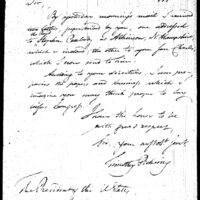 Sir,
By yesterday morning's mails I received
two letters superscribed by you, one addressed
to Stephen Peabody, Esq. Atkinson, N. Hampshire,
which is inclosed, the other to your son Charles,
which I now send to him.
According to your directions, I am pre-
paring the papers and hearings which I
imagine you may think proper to lay
before Congress.
I have the honor to be
with great respect,
Sir, your most obt servt
Timothy Pickering
The President of the U States.